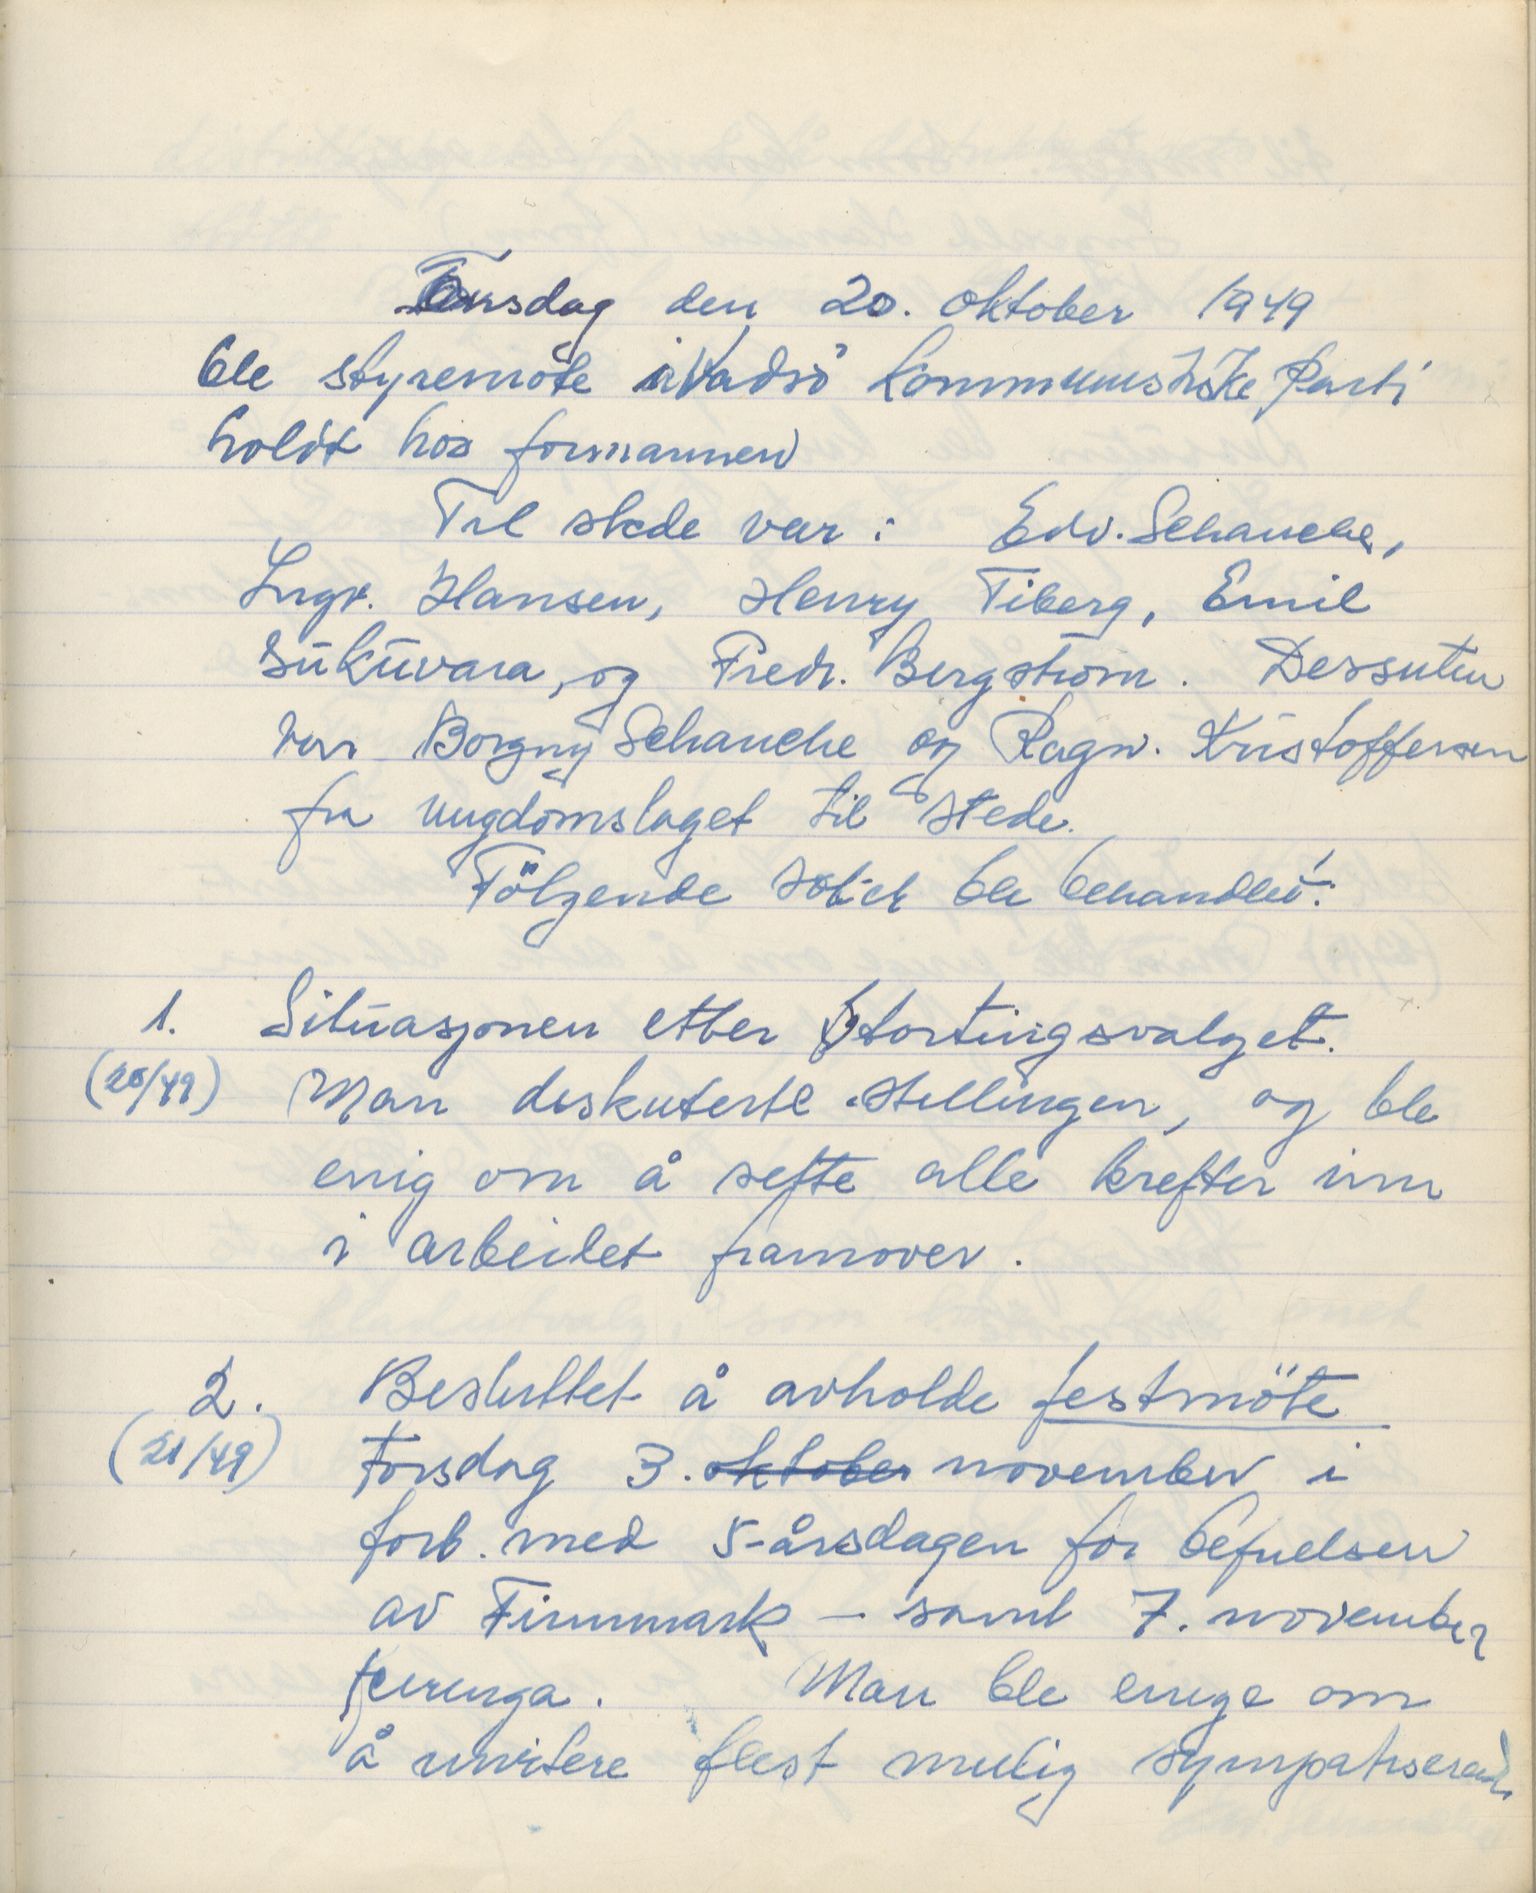 Torsdag den 20. oktober 1949
ble styremöte i Vadsö Kommunistiske Parti
holdt hos formannen
Til stede var: Edv. Schanche,
Ingv. Hansen, Henry Tiberg, Emil
Sukuvara, og Fredr. Bergström. Dessuten
var Borgny Schanche og Ragn. Kristoffersen
fra ungdomslaget til stede.
Fölgende saker ble behandlet:
1. Situasjonen etter Stortingsvalget.
(20/49) Man diskuterte stillingen, og ble
enig om å sette alle krefter inn
i arbeidet framover.
2. Besluttet å avholde festmöte
(21/49) torsdag 3. oktober november i
forb. med 5-årsdagen for befrielsen
av Finnmark - samt 7. november
feiringa. Man ble enige om
å invitere flest mulig sympatiserende